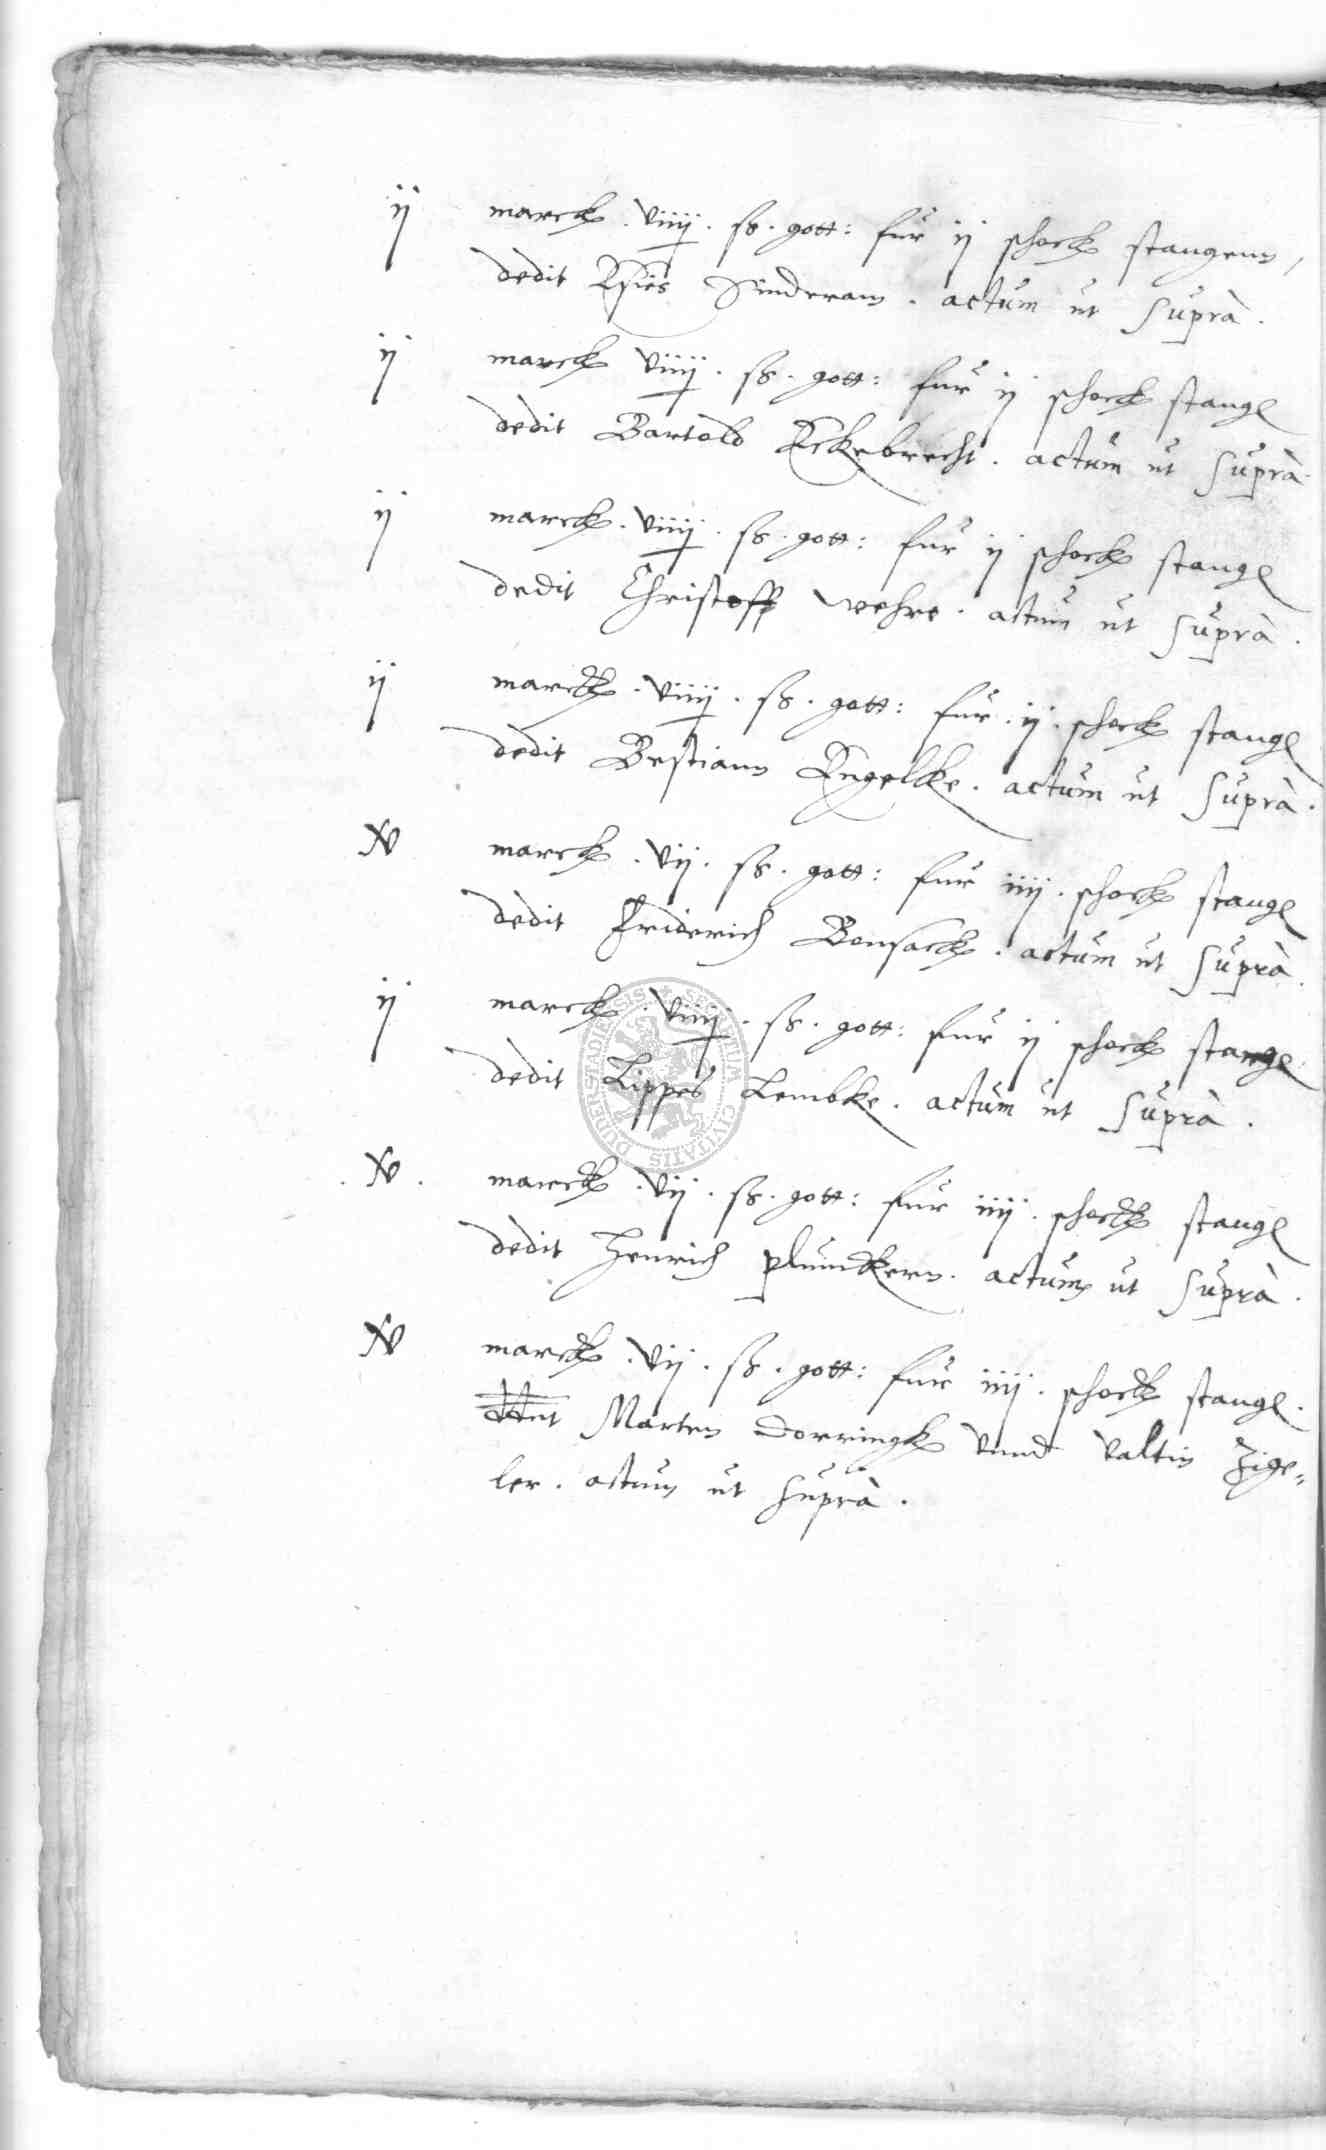 ij marck . viiij . ß . gott : fur ij schock stangenn,
dedit Esies Sinderam . actum ut supra .
ij marck viiij . ß . gott : fur ij schock stang
dedit Bartold Eckebrecht . actum ut supra
ij marck . viiij . ß . gott : fur ij schock stang
dedit Christoff wehre . actum ut supra .
ij marck . viiij . ß . gott : fur . ij . schock stang
dedit Bestiann Engelke . actum ut supra .
v marck . vij . ß . gott : fur iiij . schock stang
dedit Friderich Bonsack . actum ut supra .
ij marck . viiij . ß . gott : fur ij schock stange
dedit Lippes Lembke . actum ut supra .
. v . marck . vij . ß . gott : fur iiij . schock stang
dedit Henrich plumckern . actum ut supra .
v marck . vij . ß . gott : fur iiij . schock stang .
Marten dorringk vnnd valtin Zige=
ler . actum ut supra .
SECRETUM CIVITATIS DUDERSTADIENSIS